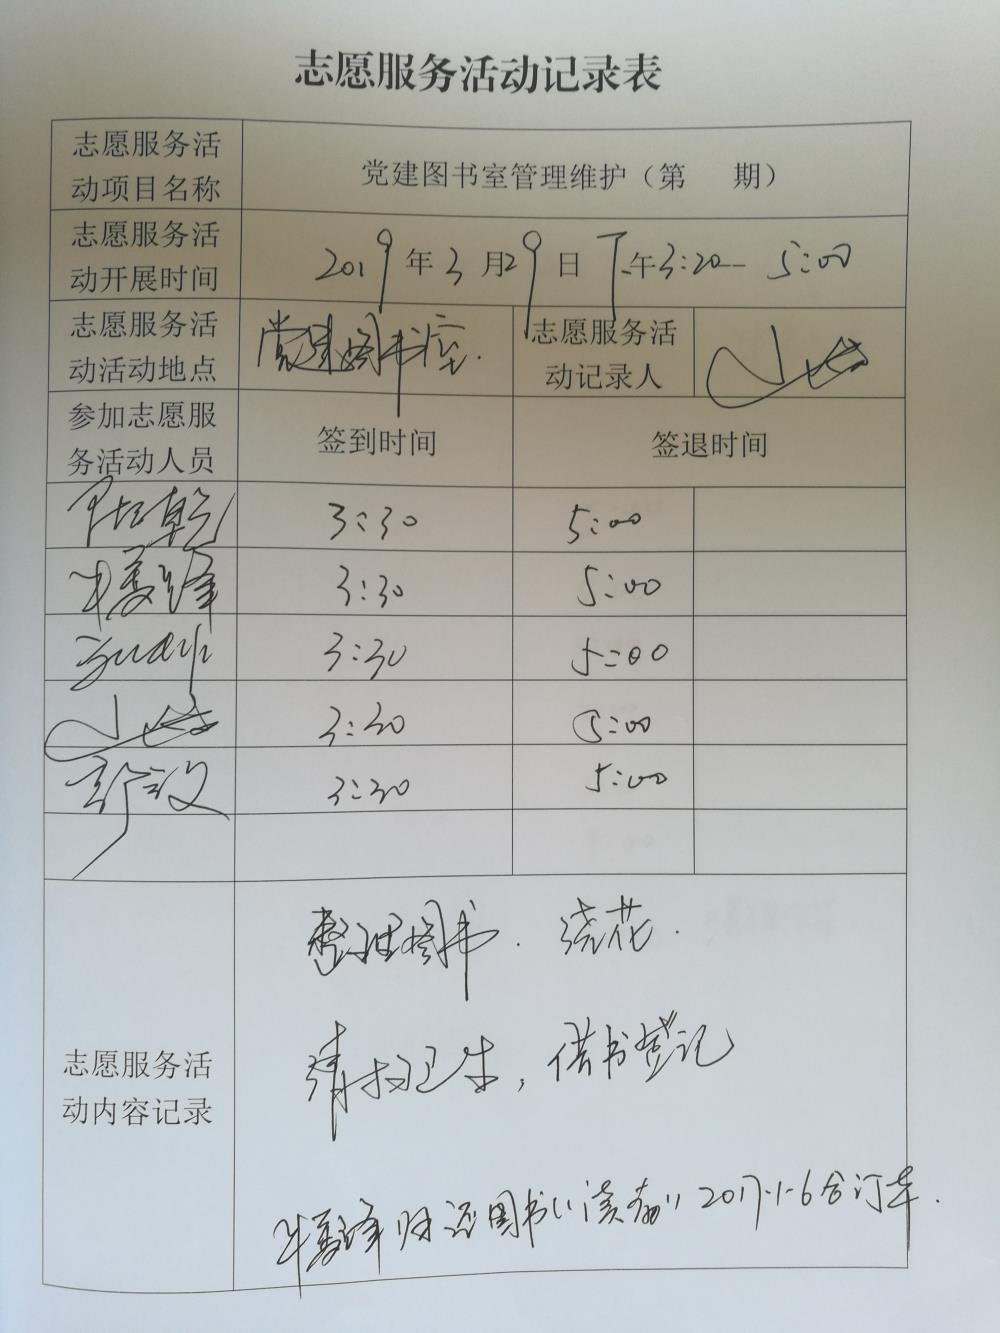 志愿服务活动记录表
志愿服务活
动项目名称
党建图书室管理维护（第 期）
志愿服务活
动开展时间
2019年3月29日 下午3:20-- 5:00
志愿服务活
动活动地点
党建图书室.
志愿服务活
动记录人
参加志愿服
务活动人员
签到时间
签退时间
3:30 5:00
3:30 5:00
3:30 5:00
3:30 5:00
3:30 5:00
志愿服务活
动内容记录
整理图书. 浇花.
清扫卫生，借书登记
归还图书《读者》2017.1-6合订本.